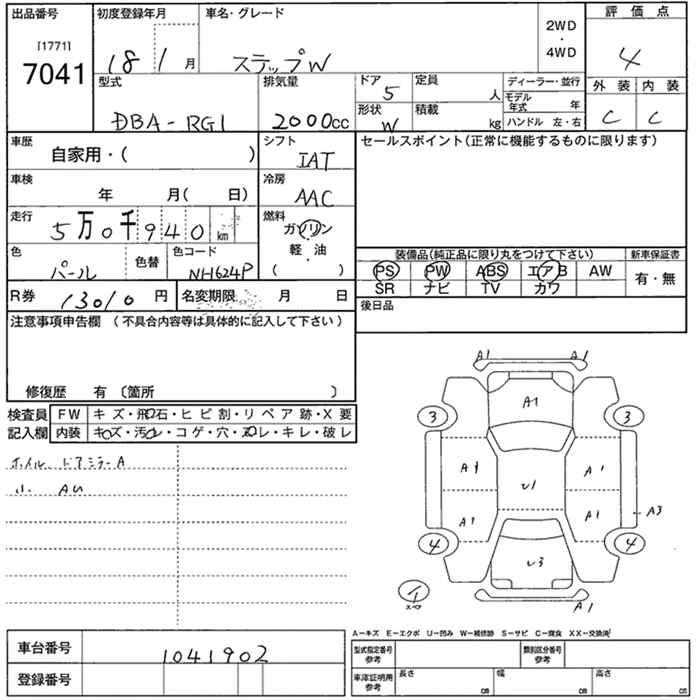 出品番号 初度登録年月 車名・グレード 評価点
[1771]
7041
18 1 月 ステップW 2WD ・ 4WD 4
型式 排気量 ドア 定員 ディーラー・並行 外装 内装
DBA-RG1 2000cc 5 人 モデル年式 年 C C
形状 積載 ハンドル 左・右
W kg
車歴 シフト セールスポイント(正常に機能するものに限ります)
自家用・( ) IAT
車検 冷房
年 月( 日) AAC
走行 燃料
5万0千940 km ガソリン
軽・油
色 色替 色コード ( ・ )
パール NH624P
装備品(純正品に限り丸をつけて下さい) 新車保証書
PS PW ABS エアB AW 有・無
SR ナビ TV カワ
R券 13010 円 名変期限 月 日 後日品
注意事項申告欄 (不具合内容等は具体的に記入して下さい)
修復歴 有 〔箇所 〕
検査員 FW キズ・飛石・ヒビ割・リペア跡・X要
記入欄 内装 キズ・汚レ・コゲ・穴・スレ・キレ・破レ
ホイル、ドアミラーA
小 AU
A1 A1
A1
3 3
A1 A1
U1
A1 A1 A3
4 4
U3
A1
A−キズ E−エクボ U−凹み W−補修跡 S−サビ C−腐食 XX−交換済
車台番号 1041902
登録番号
型式指定番号 参考 類別区分番号 参考
車庫証明用 参考 長さ cm 幅 cm 高さ cm